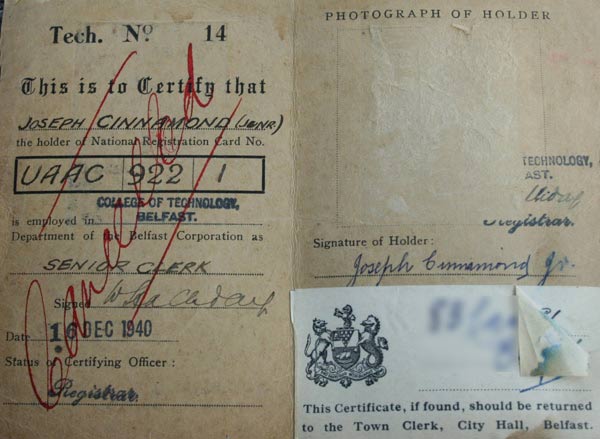 Tech. No. 14
This is to Certify that
JOSEPH CINNAMOND (JUNR)
the holder of National Registration Card No.
UAAC 922 1
COLLEGE OF TECHNOLOGY,
BELFAST.
is employed in
Department of the Belfast Corporation as
SENIOR CLERK
Signed
Date 16 DEC 1940
Status of Certifying Officer :
Registrar.
Cancelled
PHOTOGRAPH OF HOLDER
TECHNOLOGY,
AST.
Registrar.
Signature of Holder :
Joseph Cinnamond Jr.
This Certificate, if found, should be returned
to the Town Clerk, City Hall, Belfast.